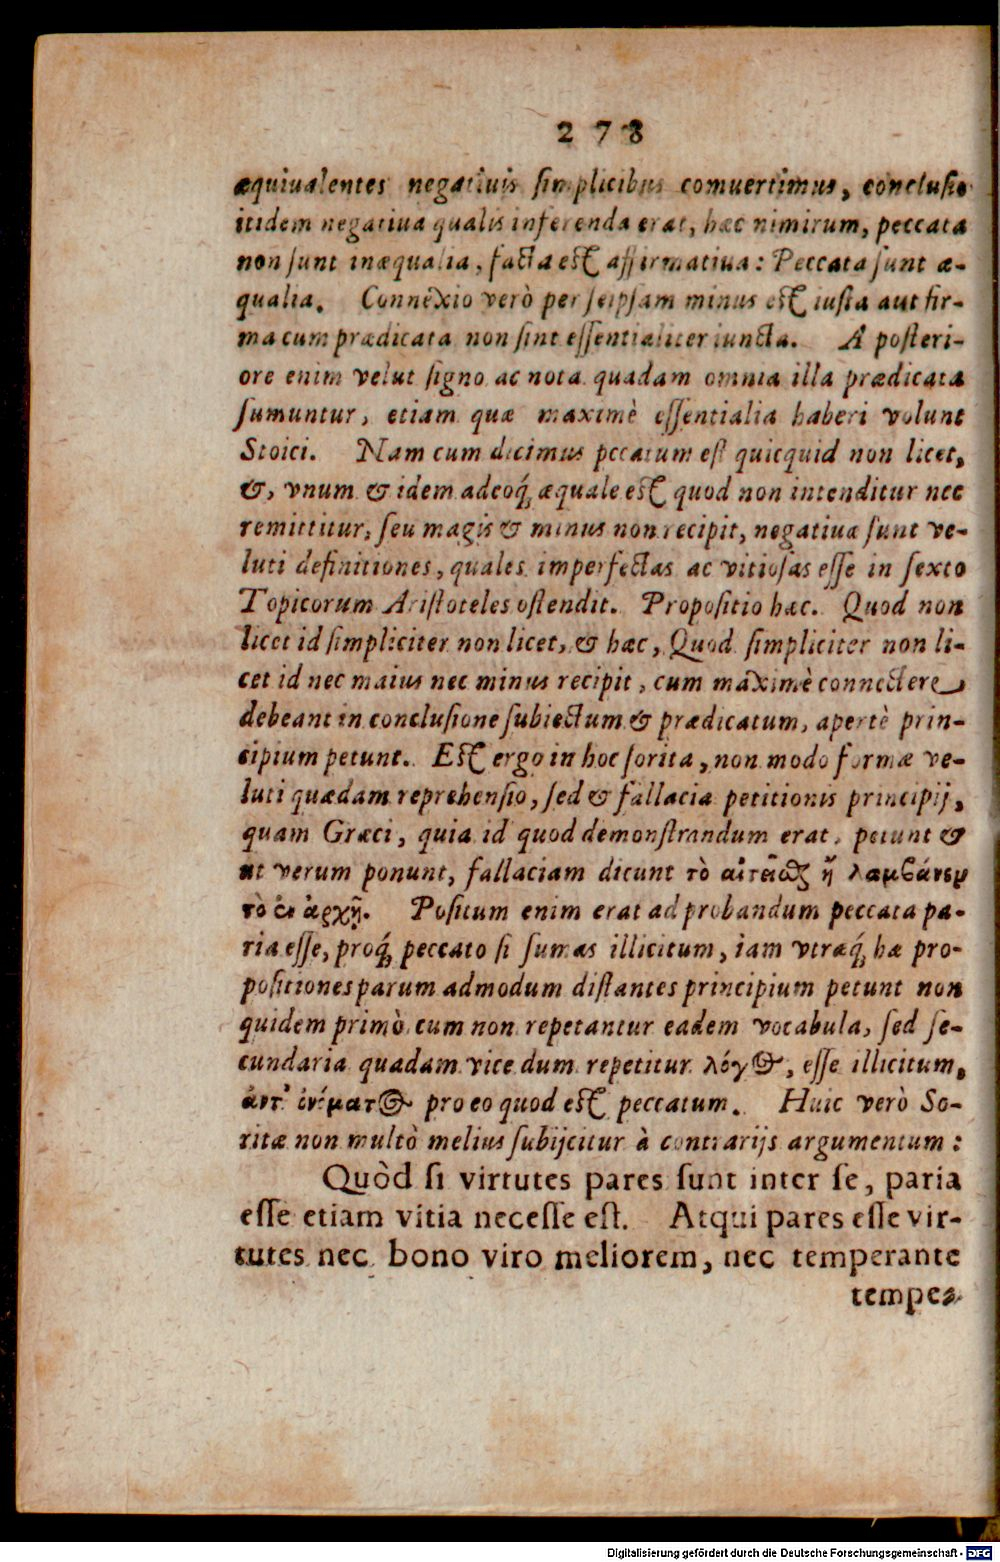 2 7 8
æquiualentes negatiuis ſimplicibus comuertimus, concluſio
itidem negatiua qualis inferenda erat, hæc nimirum, peccata
non ſunt inæqualia, facta eſt affirmatiua: Peccata ſunt æ-
qualia. Connexio verò per ſeipſam minus eſt iuſta aut fir-
ma cum prædicata non ſint eſſentialiter iuncta. A poſteri-
ore enim velut ſigno ac nota quadam omnia illa prædicata
ſumuntur, etiam quæ maximè eſſentialia haberi volunt
Stoici. Nam cum dicimus pccatum eſt quicquid non licet,
&, vnum & idem adeoq́ æquale eſt quod non intenditur nec
remittitur, ſeu magis & minus non recipit, negatiuæ ſunt ve-
luti definitiones, quales imperfectas ac vitioſas eſſe in ſexto
Topicorum Ariſtoteles oſtendit. Propoſitio hæc. Quod non
licet id ſimpliciter non licet, & hæc, Quod ſimpliciter non li-
cet id nec maius nec minus recipit, cum maximè connectere
debeant in concluſione ſubiectum & prædicatum, apertè prin-
cipium petunt. Eſt ergo in hoc ſorita, non modo formæ ve-
luti quædam reprehenſio, ſed & fallacia petitionis principij,
quam Græci, quia id quod demonſtrandum erat, petunt &
ut verum ponunt, fallaciam dicunt τὸ αἰτεῖσθαι ἢ λαμβάνειν
τὸ ἐν ἀρχῇ. Poſitum enim erat ad probandum peccata pa-
ria eſſe, proq́ peccato ſi ſumas illicitum, iam vtræq́ hæ pro-
poſitiones parum admodum diſtantes principium petunt non
quidem primò cum non repetantur eadem vocabula, ſed ſe-
cundaria quadam vice dum repetitur λόγος, eſſe illicitum,
ἀντ' ὀνόματος pro eo quod eſt peccatum. Huic verò So-
ritæ non multò melius ſubijcitur à contrarijs argumentum:
Quòd ſi virtutes pares ſunt inter ſe, paria
eſſe etiam vitia neceſſe eſt. Atqui pares eſſe vir-
tutes nec bono viro meliorem, nec temperante
tempe-
Digitalisierung gefördert durch die Deutsche Forschungsgemeinschaft - DFG